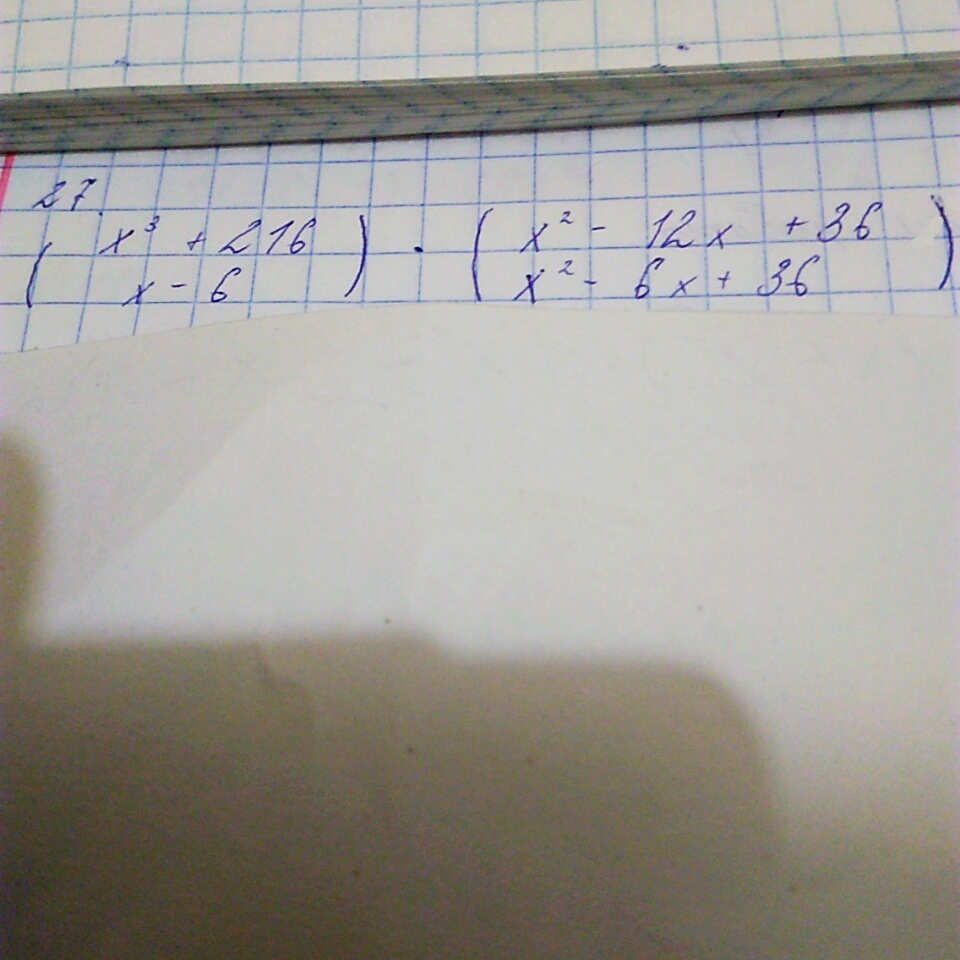 27.
( x³ + 216 ) · ( x² - 12x + 36 )
x - 6 x² - 6x + 36